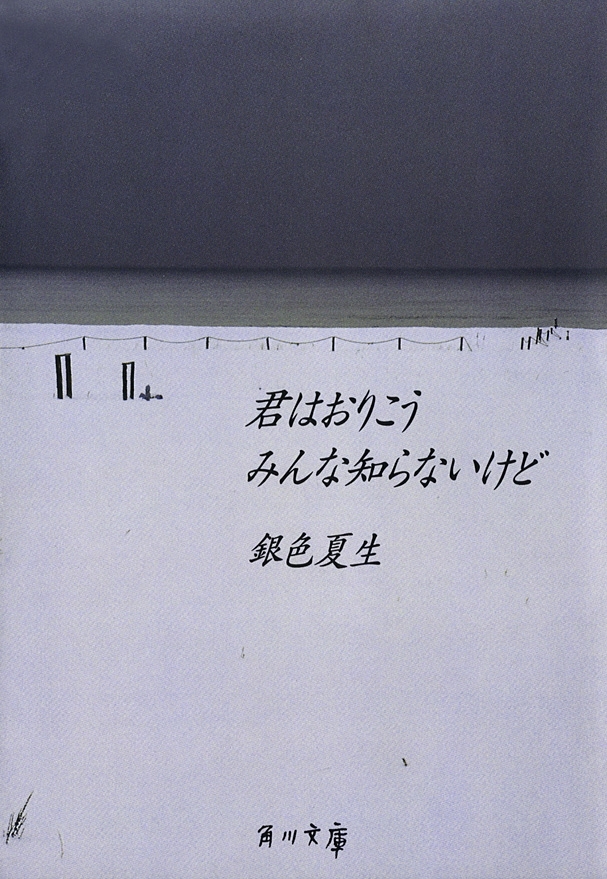 君はおりこう
みんな知らないけど
銀色夏生
角川文庫